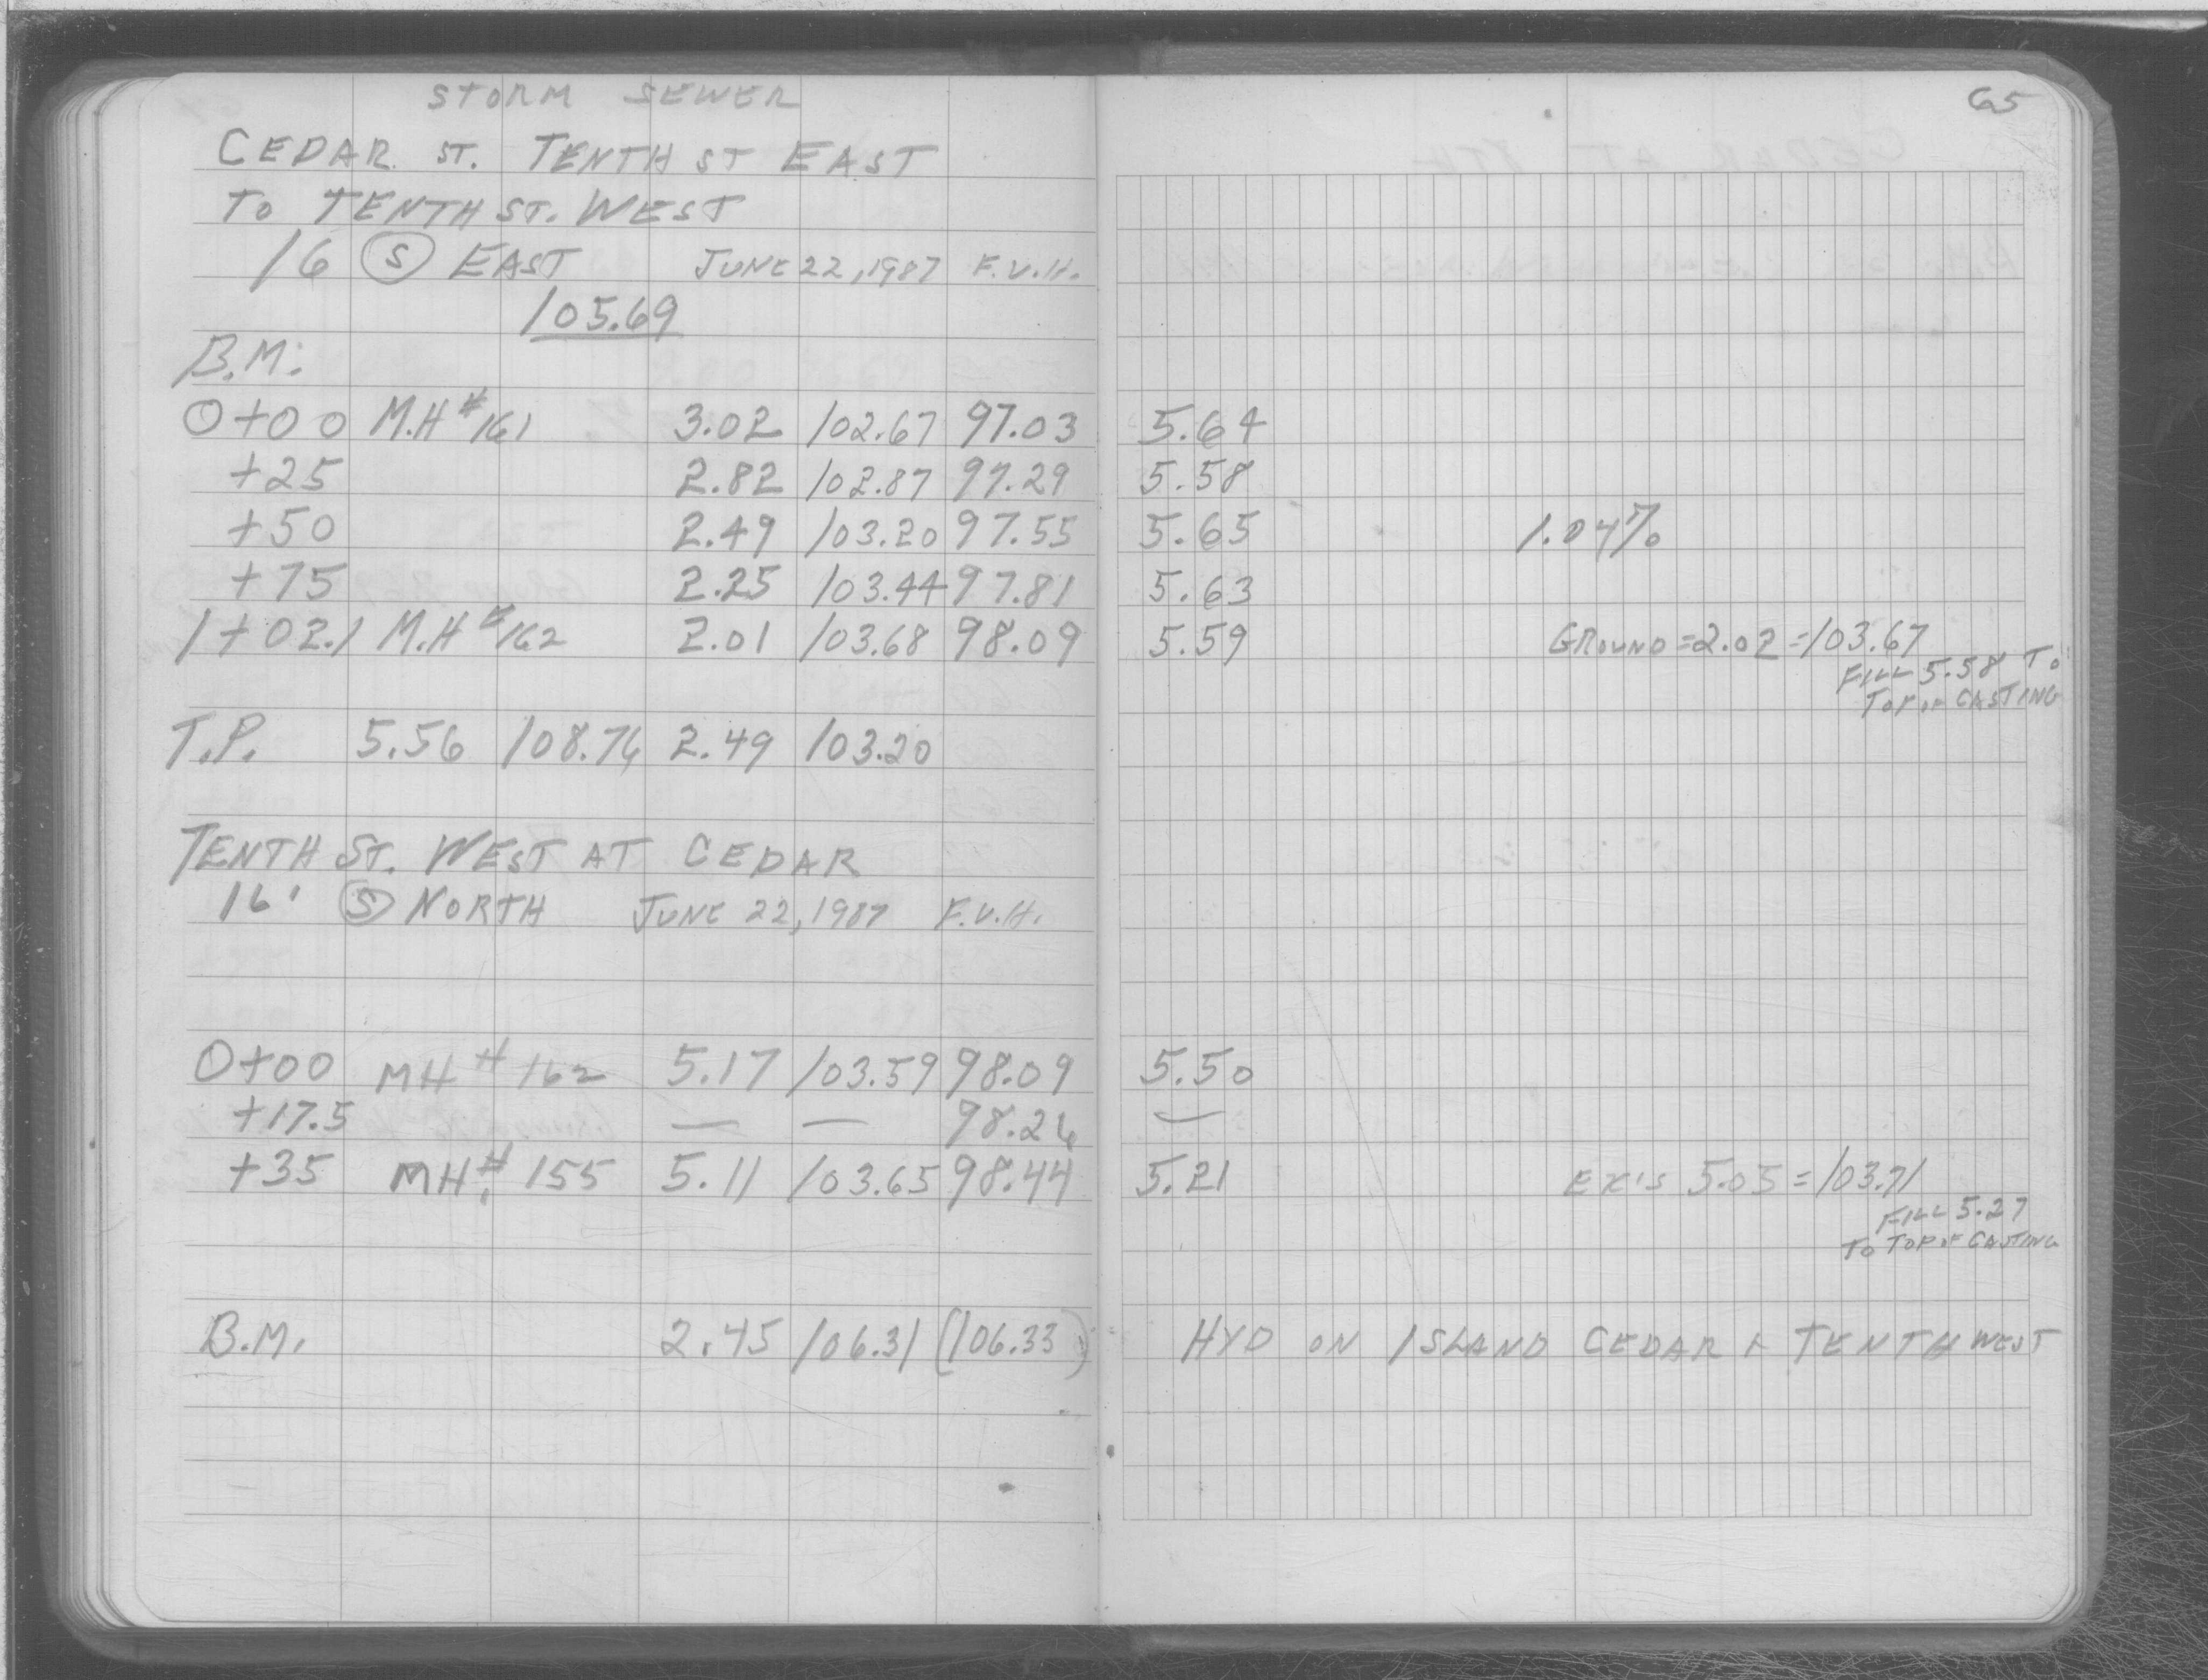 STORM SEWER
65
CEDAR ST. TENTH ST EAST
TO TENTH ST. WEST
16 (S) EAST JUNE 22, 1987 F.V.H.
105.69
B.M.
0+00 M.H #161 3.02 102.67 97.03 5.64
+25 2.82 102.87 97.29 5.58
+50 2.49 103.20 97.55 5.65 1.04%
+75 2.25 103.44 97.81 5.63
1+02.1 M.H #162 2.01 103.68 98.09 5.59 GROUND = 2.02 = 103.67
FILL 5.58 TO
TOP OF CASTING
T.P. 5.56 108.76 2.49 103.20
TENTH ST. WEST AT CEDAR
16' (S) NORTH JUNE 22, 1987 F.V.H.
0+00 MH #162 5.17 103.59 98.09 5.50
+17.5 — — 98.26 —
+35 MH.# 155 5.11 103.65 98.44 5.21 EX'S 5.05 = 103.71
FILL 5.27
TO TOP OF CASTING
B.M. 2.45 106.31 (106.33) HYD ON ISLAND CEDAR + TENTH WEST